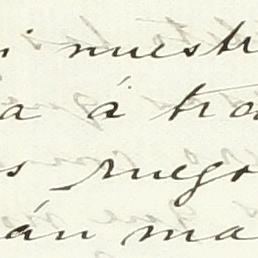 i nuestr
a á tra
s ruego
án ma